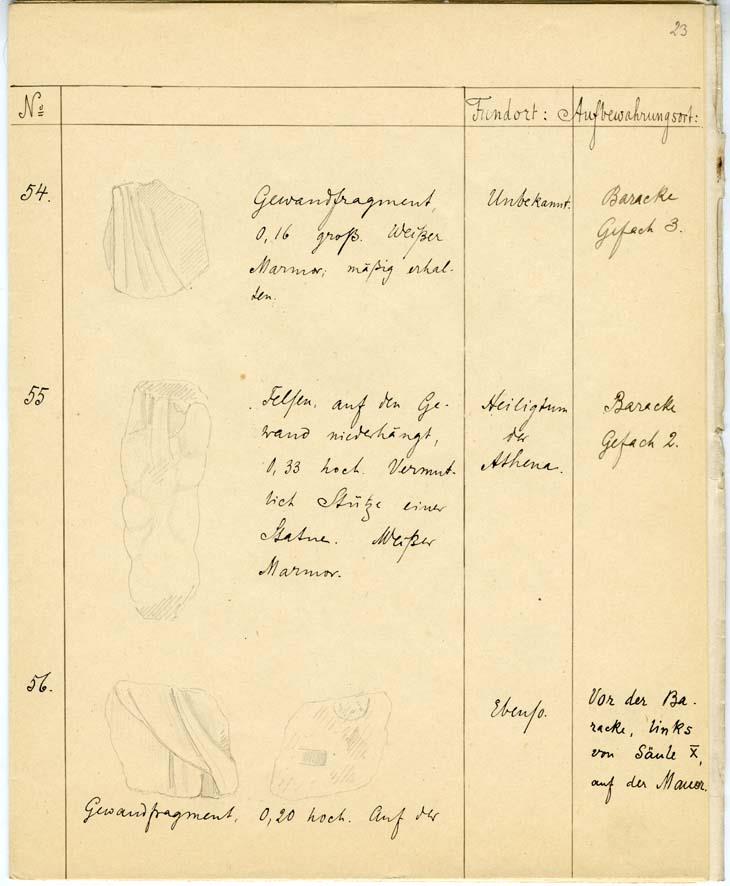 23
№ Fundort: Aufbewahrungsort:
54.
Gewandfragment,
0,16 groß. Weißer
Marmor; mäßig erhal-
ten.
Unbekannt.
Baracke
Gefach 3.
55
Felsen, auf den Ge-
wand niederhängt,
0,33 hoch. Vermut-
lich Stütze einer
Statue. Weißer
Marmor.
Heiligtum
der
Athena.
Baracke
Gefach 2.
56.
Gewandfragment, 0,20 hoch. Auf der
Ebenso.
Vor der Ba-
racke, links
von Säule X,
auf der Mauer.